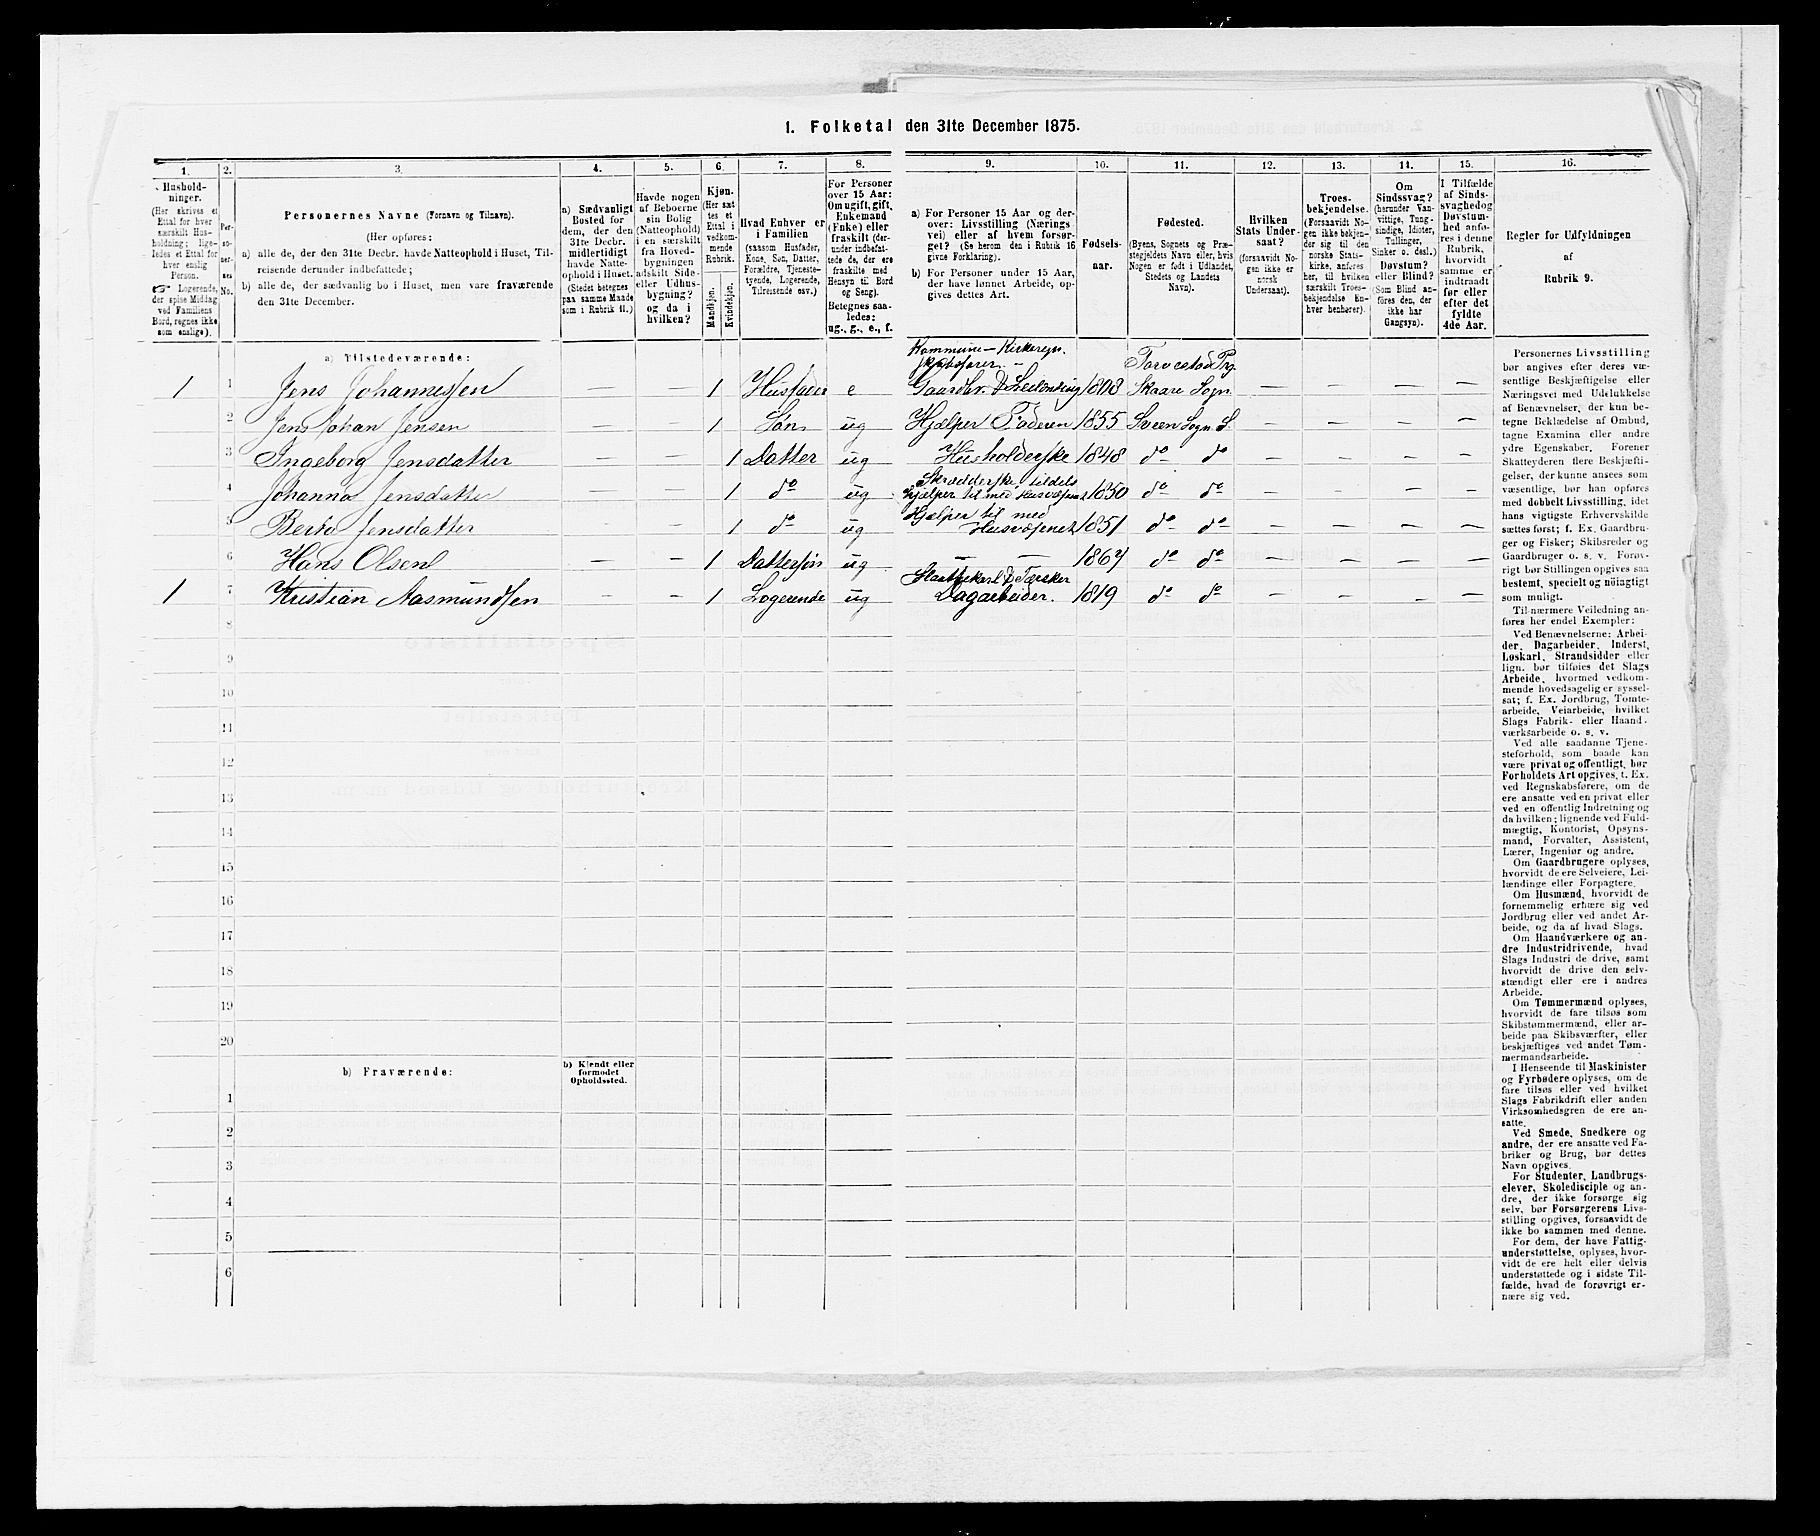 1. Folketal den 31te December 1875.
1. 2. 3. 4. 5. 6. 7. 8. 9. 10. 11. 12. 13. 14. 15. 16.
Hushold-
ninger.
(Her skrives et
Ettal for hver
særskilt Hus-
holdning; lige-
ledes et Ettal for
hver enslig
Person.
☞ Logerende,
der spise Middag
ved Familiens
Bord, regnes ikke
som enslige).
Per-
so-
ner-
nes
No.
Personernes Navne (Fornavn og Tilnavn).
(Her opføres:
a) alle de, der den 31te Decbr. havde Natteophold i Huset, Til-
reisende derunder indbefattede;
b) alle de, der sædvanlig bo i Huset, men vare fraværende
den 31te December.
a) Sædvanligt
Bosted for
dem, der den
31te Decbr.
midlertidigt
havde Natte-
ophold i Huset.
(Stedet betegnes
paa samme Maade
som i Rubrik 11.)
Havde nogen
af Beboerne
sin Bolig
(Natteophold)
i en særskilt
fra Hoved-
bygningen
adskilt Side-
eller Udhus-
bygning?
og da i
hvilken?
Kjøn.
(Her sæt-
tes et
Ettal i
vedkom-
mende
Rubrik.
Mandkjøn.
Kvindekjøn.
Hvad Enhver er
i Familien
(saasom Husfader,
Kone, Søn, Datter,
Forældre, Tjeneste-
tyende, Logerende,
Tilreisende osv.)
For Personer
over 15 Aar:
Om ugift, gift,
Enkemand
(Enke) eller
fraskilt (der-
under indbefat-
tede de, der ere
fraskilte med
Hensyn til Bord
og Seng).
Betegnes saa-
ledes:
ug., g., e., f.
a) For Personer 15 Aar og der-
over: Livsstilling (Nærings-
vei) eller af hvem forsør-
get? (Se herom den i Rubrik 16
givne Forklaring).
b) For Personer under 15 Aar,
der have lønnet Arbeide, op-
gives dettes Art.
Fødsels-
aar.
Fødested.
(Byens, Sognets og Præ-
stegjeldets Navn eller, hvis
Nogen er født i Udlandet,
Stedets og Landets
Navn).
Hvilken
Stats Under-
saat?
(forsaavidt No-
gen ikke er
norsk
Undersaat).
Troes-
bekjendelse.
(Forsaavidt No-
gen ikke bekjen-
der sig til den
norske Stats-
kirke, anføres
her, til hvilken
særskilt Troes-
bekjendelse En-
hver henhører).
Om
Sindssvag?
(herunder Van-
vittige, Tung-
sindige, Idioter,
Tullinger,
Sinker o. desl.)
Døvstum?
eller Blind?
(Som Blind an-
føres den, der
ikke har
Gangsyn).
I Tilfælde
af Sinds-
svaghed og
Døvstum-
hed anfø-
res i denne
Rubrik,
hvorvidt
samme er
indtraadt
før eller
efter det
fyldte
4de Aar.
Regler for Udfyldningen
af
Rubrik 9.
a) Tilstedeværende:
Kommune- Kirkeregn.
skabsfører. — Torvestad Pg.
1 1 Jens Johannessen — — 1 Husfader e Gaardbr. & Leilending 1808 Skaare Sogn — — — —
2 Jens Johan Jensen — — 1 Søn ug Hjælper Faderen 1855 Sveen Sogn S. — — — —
3 Ingeborg Jensdatter — — 1 Datter ug Husholderske 1848 do do — — — —
Skrædderske tildels
4 Johanna Jensdatter — — 1 do ug hjælper til med Husvæsenet 1850 do do — — — —
Hjælper til med
5 Berta Jensdatter — — 1 do ug Husvæsenet 1851 do do — — — —
6 Hans Olsen — — 1 Dattersøn ug — — 1867 do do — — — —
& Tærsker
1 7 Kristian Aasmundsen — — 1 Logerende ug Dagarbeider. 1819 do do — — — —
8
9
10
11
12
13
14
15
16
17
18
19
20
b) Fraværende:
b) Kjendt eller
formodet
Opholdssted.
1
2
3
4
5
6
Personernes Livsstilling
bør angives efter deres væ-
sentlige Beskjæftigelse eller
Næringsvei med Udelukkelse
af Benævnelser, der kun be-
tegne Beklædelse af Ombud,
tagne Examina eller andre
ydre Egenskaber. Forener
Skatteyderen flere Beskjæfti-
gelser, der kunne ansees som
væsentlige, bør han opføres
med dobbelt Livsstilling, idet
hans vigtigste Erhvervskilde
sættes først; f. Ex. Gaardbru-
ger og Fisker; Skibsreder og
Gaardbruger o. s. v. Forøv-
rigt bør Stillingen opgives saa
bestemt, specielt og nöiagtigt
som muligt.
Til nærmere Veiledning an-
føres her endel Exempler:
Ved Benævnelserne: Arbei-
der, Dagarbeider, Inderst,
Løskarl, Strandsidder eller
lign. bør tilføies det Slags
Arbeide, hvormed vedkom-
mende hovedsagelig er syssel-
sat; f. Ex. Jordbrug, Tomte-
arbeide, Veiarbeide, hvilket
Slags Fabrik- eller Haand-
værksarbeide o. s. v.
Ved alle saadanne Tjene-
steforhold, som baade kan
være privat og offentligt, bør
Forholdets Art opgives, t. Ex.
ved Regnskabsførere, om de
ere ansatte ved en privat eller
ved en offentlig Indretning og
da hvilken; lignende ved Fuld-
mægtig, Kontorist, Opsyns-
mand, Forvalter, Assistent,
Lærer, Ingeniør og andre.
Om Gaardbrugere oplyses,
hvorvidt de ere Selveiere, Lei-
lændinge eller Forpagtere.
Om Husmænd, hvorvidt de
fornemmelig erhære sig ved
Jordbrug eller ved andet Ar-
beide, og da af hvad Slags.
Om Haandværkere og an-
dre Industridrivende, hvad
Slags Industri de drive, samt
hvorvidt de drive den selv-
stændigt eller ere i andres
Arbeide.
Om Tømmermænd oplyses,
hvorvidt de fare tilsøs som
Skibstømmermænd, eller ar-
beide paa Skibsværfter, eller
beskjæftiges ved andet Tøm-
mermandsarbeide.
I Henseende til Maskinister
og Fyrbødere oplyses, om de
fare tilsøs eller ved hvilket
Slags Fabrikdrift eller anden
Virksomhedsgren de ere an-
satte.
Ved Smede, Snedkere og
andre, der ere ansatte ved Fa-
briker og Brug, bør dettes
Navn opgives.
For Studenter, Landbrugs-
elever, Skoledisciple og an-
dre, der ikke forsørge sig
selv, bør Forsørgerens Livs-
stilling opgives, forsaavidt de
ikke bo sammen med denne.
For dem, der have Fattig-
understøttelse, oplyses, hvor-
vidt de ere helt eller delvis
understøttede og i sidste Til-
fælde, hvad de forøvrigt er-
nære sig ved.